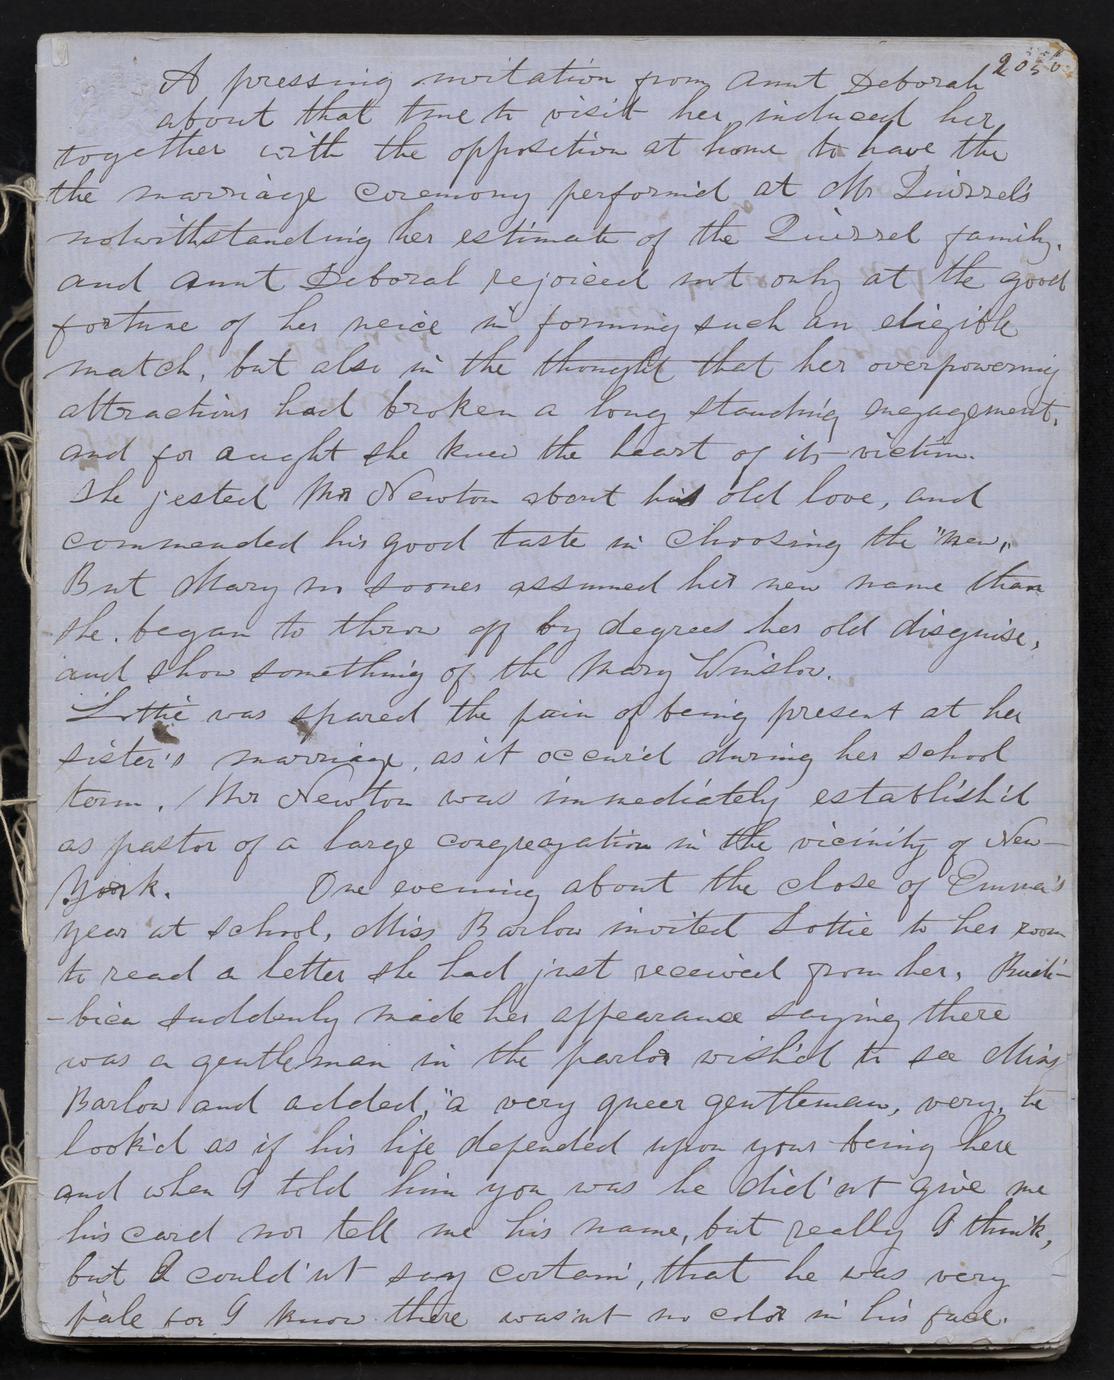 205
A pressing invitation from Aunt Deborah
about that time to visit her, induced her
together with the opposition at home to have the
the marriage ceremony perform'd at Mr Quirrel's
notwithstanding her estimate of the Quirrel family.
and Aunt Deborah rejoiced not only at the good
fortune of her neice in forming such an eligible
match, but also in the thought that her overpowering
attractions had broken a long standing engagement,
and for aught she knew the heart of its victim.
She jested Mr Newton about his old love, and
commended his good taste in choosing the "new,"
But Mary no sooner assumed her new name than
she began to throw off by degrees her old disguise,
and show something of the Mary Winslow.
Lottie was spared the pain of being present at her
sister's marriage, as it occur'd during her school
term. Mr Newton was immediately establish'd
as pastor of a large congregation in the vicinity of New-
York. One evening about the close of Emma's
year at school, Miss Barlow invited Lottie to her room
to read a letter she had just received from her,
-bien suddenly made her appearance saying there
was a gentleman in the parlor wish'd to see Miss
Barlow and added, "a very queer gentleman, very, he
look'd as if his life depended upon your being here
and when I told him you was he did'nt give me
his card nor tell me his name, but really I think,
but I could'nt say certain, that he was very
pale for I know there was'nt no color in his face.